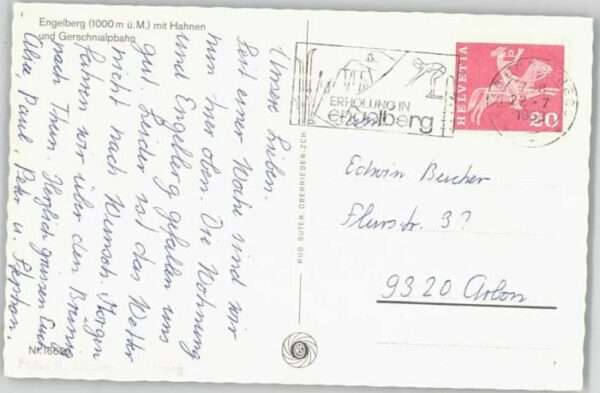 Engelberg (1000 m ü. M.) mit Hahnen
und Gerschnialpbahn
Unsere Lieben.
Seit einer Woche sind wir
nun hier oben. Die Wohnung
und Engelberg gefallen uns
gut. Leider ist das Wetter
nicht nach Wunsch. Morgen
fahren wir über den Brünig
nach Thun. Herzlich grüssen Euch
Alice Paul, Peter u. Stephan.
RUD. SUTER, OBERRIEDEN-ZCH
ERHOLUNG IN
engelberg
HELVETIA
20
22.-7
Edwin Bucher
Flurstr. 37
9320 Arbon